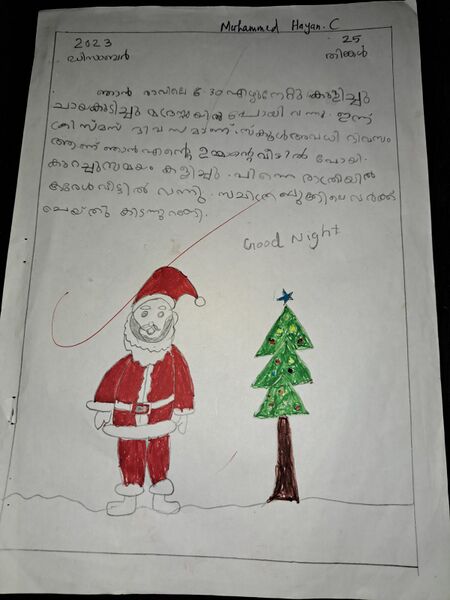 Muhammed Hayan. C
2023 25
ഡിസംബർ തിങ്കൾ
ഞാൻ രാവിലെ 6:30 എഴുന്നേറ്റു കുളിച്ചു
ചായകുടിച്ചു മദ്രസയിൽ പോയി വന്നു. ഇന്ന്
ക്രിസ്മസ് ദിവസമാണ്. സ്കൂൾ അവധി ദിവസം
ആണ് ഞാൻ എന്റെ ഉമ്മാന്റെ വീട്ടിൽ പോയി.
കുറച്ചുസമയം കളിച്ചു. പിന്നെ രാത്രിയിൽ
വീട്ടിൽ വന്നു. സചിത്ര ബുക്കിലെ വർക്ക്
ചെയ്തു കിടന്നുറങ്ങി.
Good Night